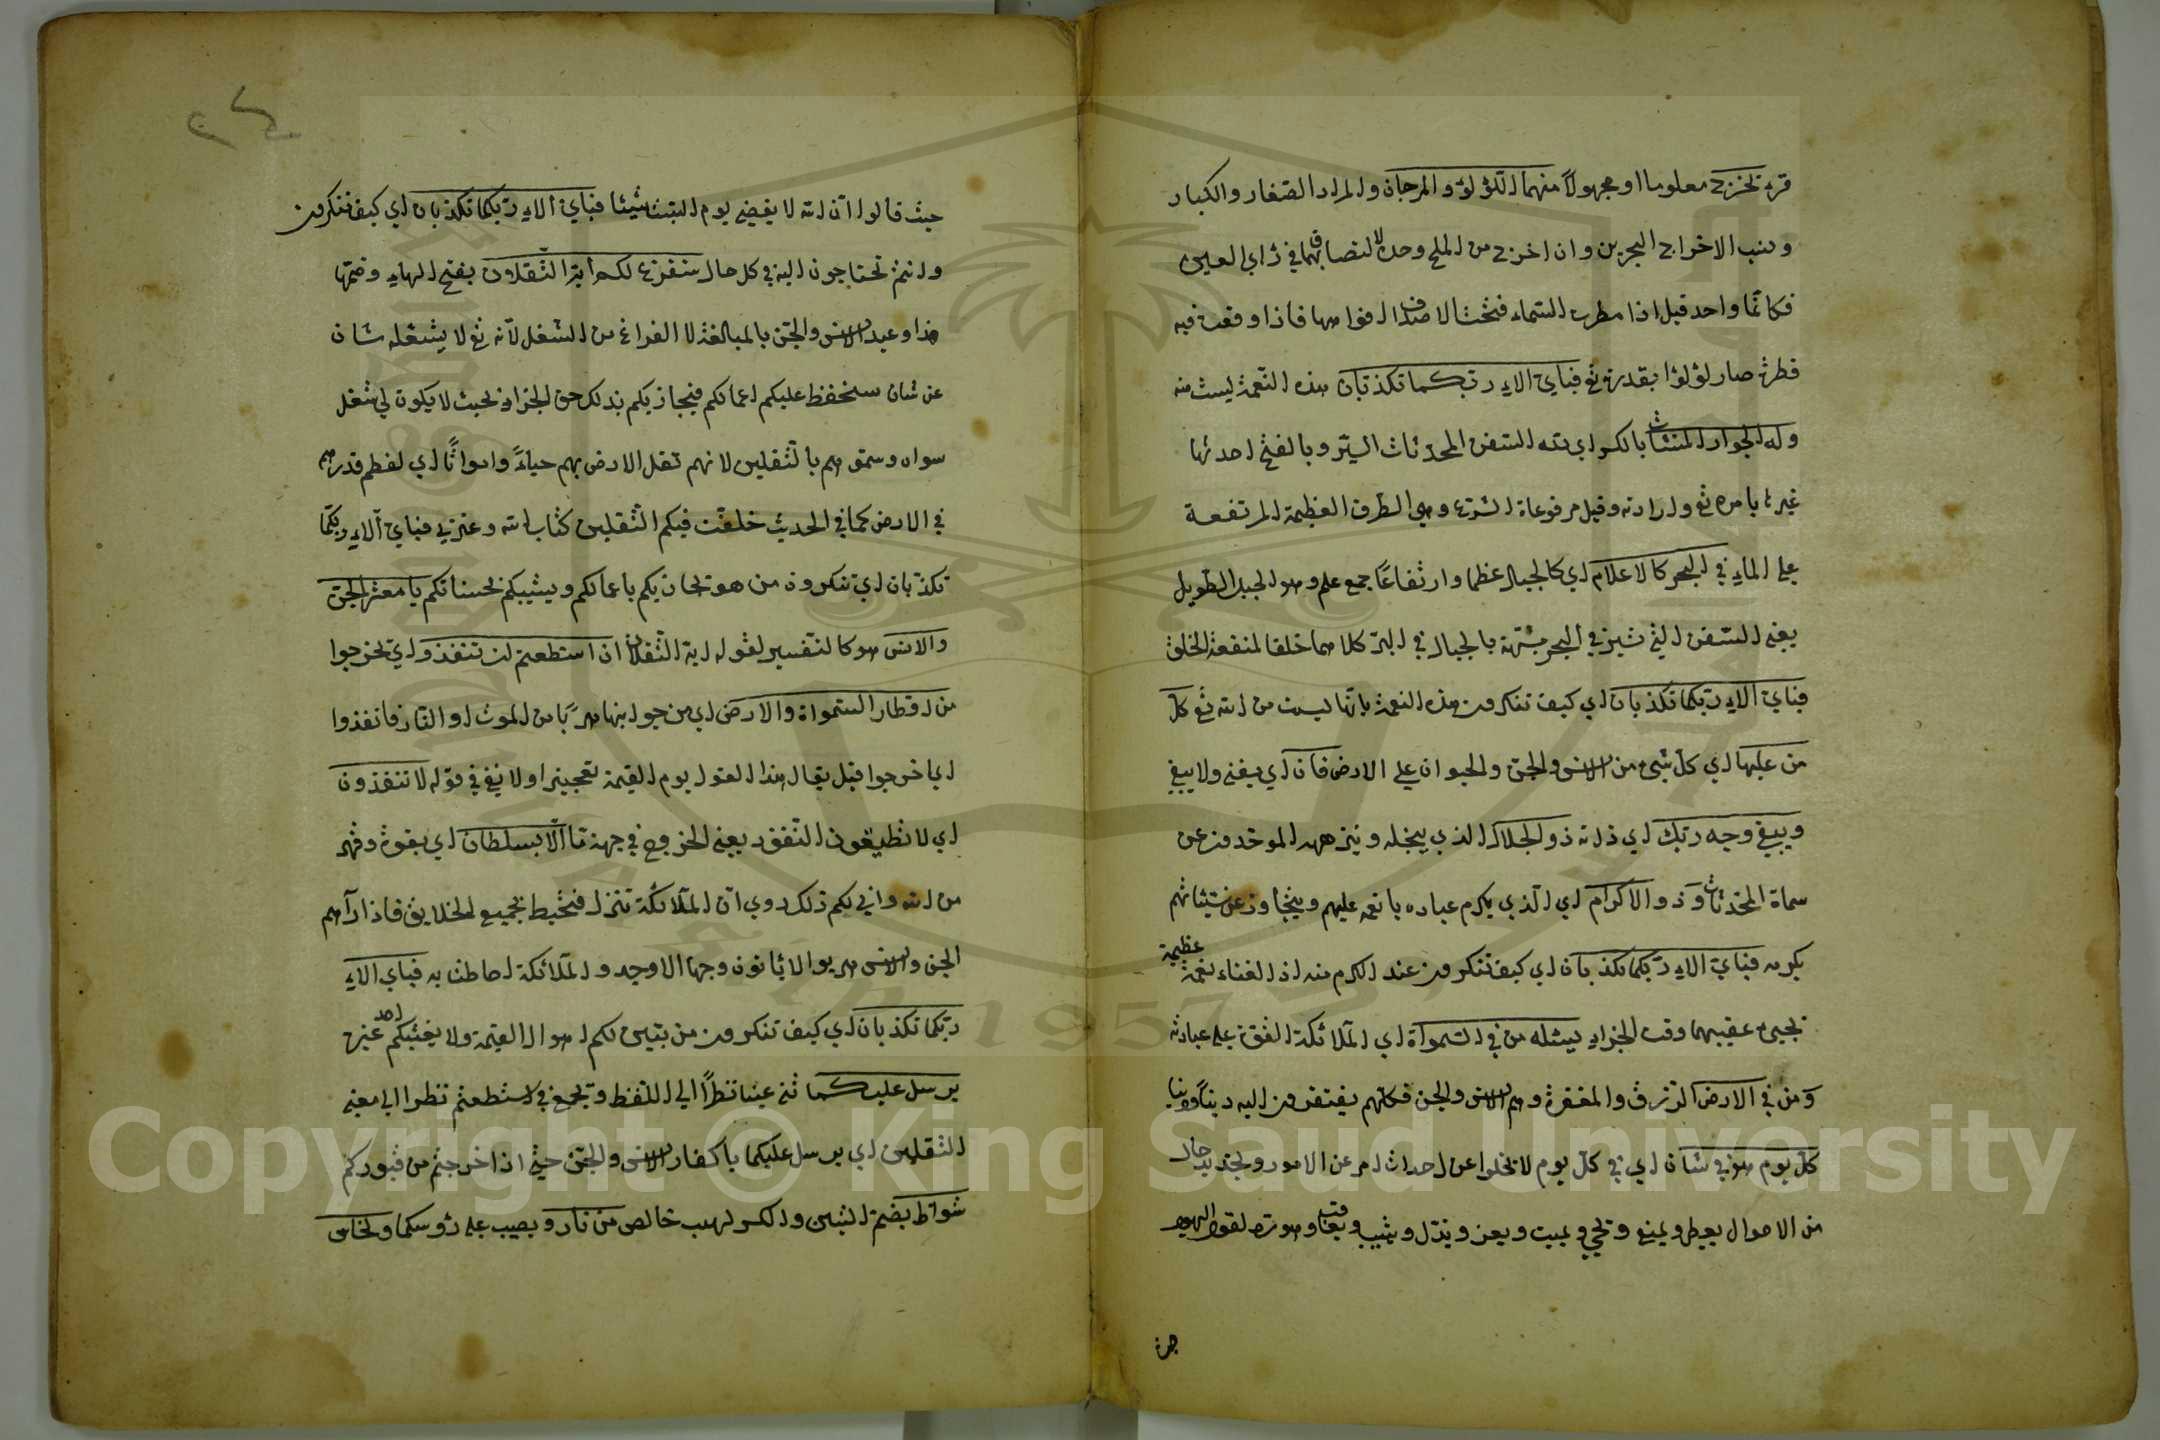 قرئ تخرج معلوما او مجهولاً منهما اللؤلؤ والمرجان والمراد الصغار والكبار
ونسب الاخراج البحرين وان اخرج من الملح وحده لالتصاقهما في رأي العين
فكانما واحد قيل اذا مطرت السماء فتحت الاصداف افواهها فاذا وقعت فيه
قطرة صار لؤلؤا بقدرته تع فباي الاء ربكما تكذبان هذه النعمة ليست منه
وله الجوار المنشآت بالكسر اي لله السفن المحدثات السير وبالفتح احدثها
غيرها بامره تع وارادته وقيل مرفوعاة الشرع وهي الطرف العظيمة المرتفعة
على الماء في البحر كالاعلام اي كالجبال عظما وارتفاعًا جمع علم وهو الجبل الطويل
يعني السفن التي تسير في البحر مشبهة بالجبال في البر كلاهما خلقا لمنفعة الخلق
فباي الاء ربكما تكذبان اي كيف تنكرون هذه النعمة بانها ليست من الله تع كل
من عليها اي كل شيء من الانس والجن والحيوان على الارض فان اي يفنى ولا يبقى
ويبقى وجه ربك اي ذاته ذو الجلال الذي يبجله وينزهه الموحدون عن
سماة المحدثات وذو الاكرام اي الذي يكرم عباده بانعمه عليهم ويتجاوز عن سيئاتهم
بكرمه فباي الاء ربكما تكذبان اي كيف تنكرون عند الكرم منه اذ الفناء نعمة عظيمة
تجيء عقيبهما وقت الجزاء يسئله من في السمواة اي الملائكة القوة على عبادته
ومن في الارض الرزق والمغفرة وهم الانس والجن فكلهم يفتقرون اليه دينًا ودنيا
كل يوم هو في شان اي في كل يوم لا يخلوا عن احداث امر عن الامور وتجديد حال
من الاحوال يعطي ويمنع ويحي ويميت ويعز ويذل ويثيب ويعاقب وهو رد لقول اليهود
حيث قالوا ان الله لا يقضي يوم السبت شيئا فباي الاء ربكما تكذبان اي كيف تنكرون
وانتم تحتاجون اليه في كل حال سنفرغ لكم ايه الثقلان بفتح الهاء وضمها
هذا وعيد الانس والجن بالمبالغة لا الفراغ من الشغل لانه تع لا يشغله شان
عن شان سنحفظ عليكم اعمالكم فنجازيكم بذلك حق الجزاء بحيث لا يكون لي شغل
سواه وسمى هم بالثقلين لانهم ثقل الارض بهم حياءً وامواتًا اي لعظم قدرهم
في الارض كما في الحديث خلفت فيكم الثقلين كتاب الله وعترتي فباي آلاء ربكما
تكذبان اي تنكرون من هو يجازيكم باعمالكم ويثيبكم بحسناتكم يا معشر الجن
والانس هو كالتفسير لقوله ايه الثقلان ان استطعتم ان تنفذوا اي تخرجوا
من اقطار السمواة والارض اي من جوانبها هربًا من الموت او النار فانفذوا
اي اخرجوا قيل يقال هذا القول يوم القيمة تعجيزا ولا نفي في قوله لا تنفذون
اي لا تطيقون النفوذ يعني الخروج في جهة ما الا بسلطان اي بقوة وقهر
من الله واني لكم ذلك روي ان الملائكة تنزل فتحيط بجميع الخلايق فاذا رآهم
الجن والانس هربوا الا يأتون وجها الا وجد والملائكة احاطت به فباي الاء
ربكما تكذبان اي كيف تنكرون من يبين لكم اهوال القيمة ولا يغيثكم احد غيره
يرسل عليكما ثني عينا نظراً الى اللفظ وجمع في استطعتم نظرا الى معنى
الثقلين اي يرسل عليكما يا كفار الانس والجن حين اذا خرجتم من قبوركم
شواظ بضم الشين والكسر لهب خالص من نار ويصيب على رؤسكما ونحاس